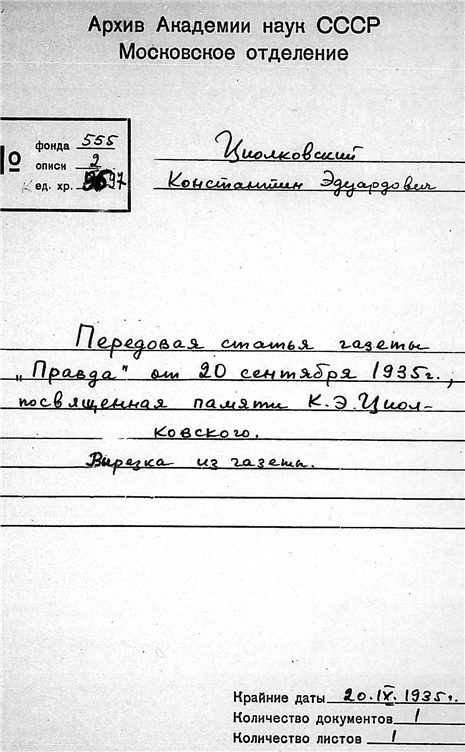 Архив Академии наук СССР
Московское отделение
№
фонда 555
описи 2
ед. хр. 97
Циолковский
Константин Эдуардович
Передовая статья газеты
„Правда" от 20 сентября 1935г.,
посвященная памяти К.Э.Циол-
ковского.
Вырезка из газеты.
Крайние даты 20.IX.1935г.
Количество документов 1
Количество листов 1